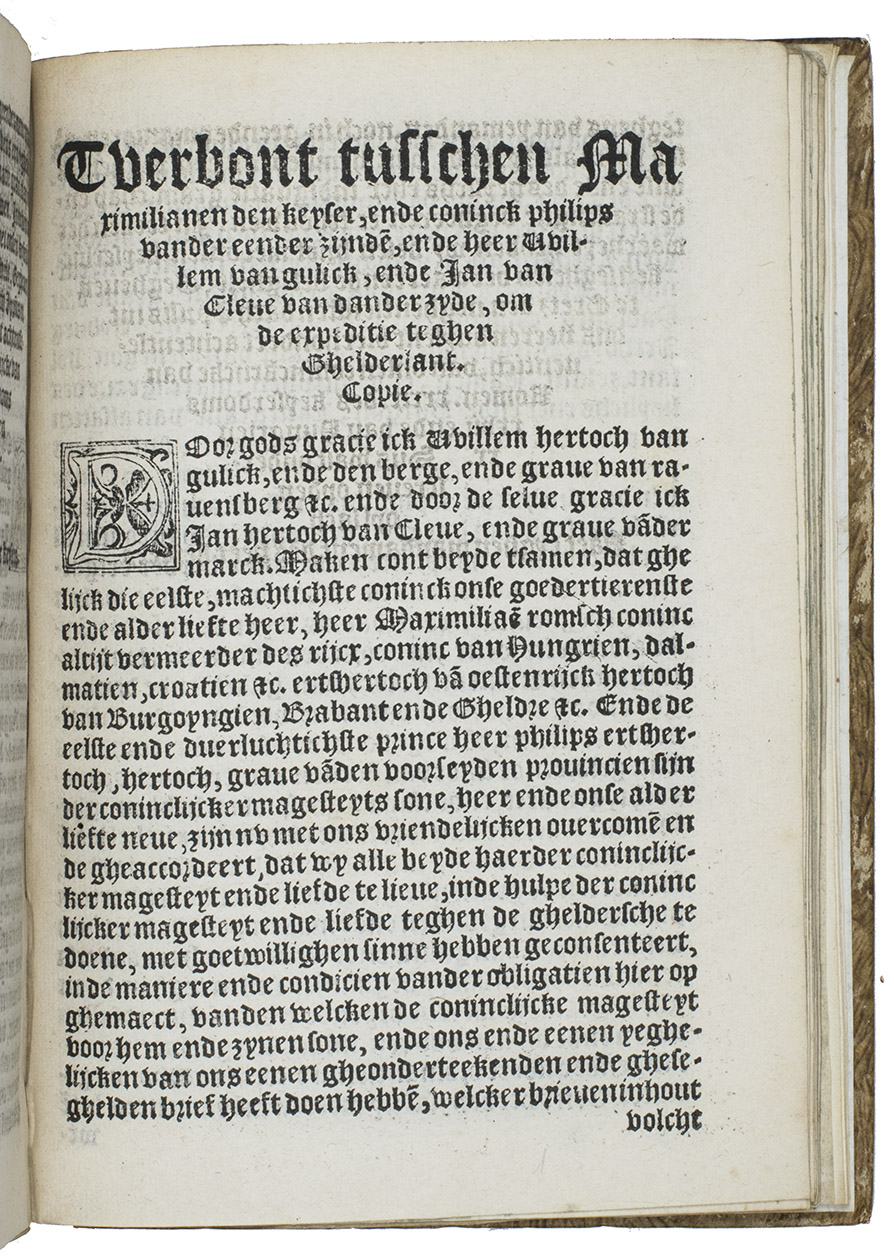 Tverbont tusschen Ma
ximilianen den keyser, ende coninck philips
vander eender zijndē, ende heer Wvil-
lem van gulick, ende Jan van
Cleue van dander zyde, om
de expeditie teghen
Ghelderlant.
Copie.
DOor gods gracie ick Wvillem hertoch van
gulick, ende den berge, ende graue van ra-
uensberg &c. ende door de selue gracie ick
Jan hertoch van Cleue, ende graue vāder
marck. Maken cont beyde tsamen, dat ghe
lijck die eelste, machtichste coninck onse goedertierenste
ende alder liefte heer, heer Maximiliaē romsch coninc
altijt vermeerder des rijcx, coninc van Hungrien, dal-
matien, croatien &c. ertshertoch vā oestenrijck hertoch
van Burgoyngien, Brabant ende Gheldre &c. Ende de
eelste ende duerluchtichste prince heer philips ertsher-
toch, hertoch, graue vāden voorseyden prouincien sijn
der coninclijcker magesteyts sone, heer ende onse alder
liefte neue, zijn nv met ons vriendelijcken ouercomē en
de gheaccordeert, dat wy alle beyde haerder coninclijc-
ker magesteyt ende liefde te lieue, inde hulpe der coninc
lijcker magesteyt ende liefde teghen de gheldersche te
doene, met goetwillighen sinne hebben geconsenteert,
inde maniere ende condicien vander obligatien hier op
ghemaect, vanden welcken de coninclijcke magesteyt
voor hem ende zynen sone, ende ons ende eenen yeghe-
lijcken van ons eenen gheonderteekenden ende ghese-
ghelden brief heeft doen hebbē, welcker brieuen inhout
volcht